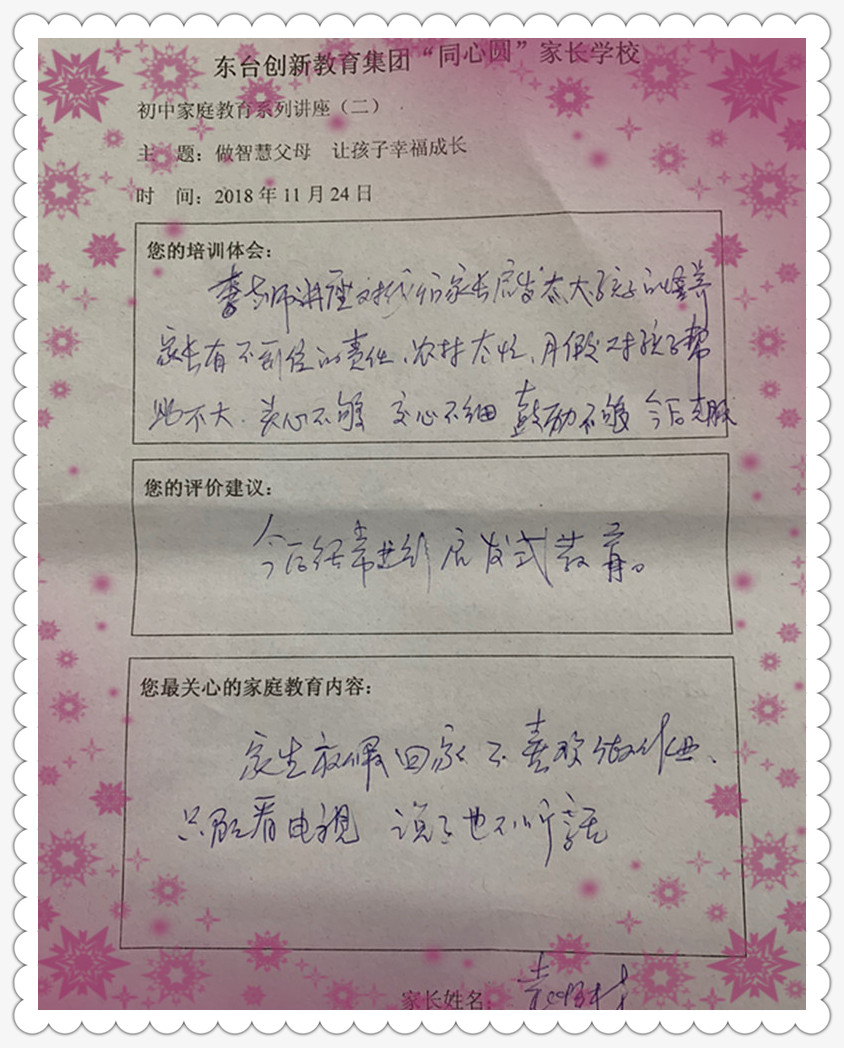 东台创新教育集团“同心圆”家长学校
初中家庭教育系列讲座（二）
主 题：做智慧父母 让孩子幸福成长
时 间：2018年11月24日
您的培训体会：
李老师讲座对我们家长启发太大孩子的培养
家长有不到位的责任、农村太忙、月假对孩子帮
助不大、关心不够 交心不细 鼓励不够 今后克服
您的评价建议：
今后经常进行启发式教育。
您最关心的家庭教育内容：
家生放假回家不喜欢做作业、
只顾看电视 说了也不听话
家长姓名：